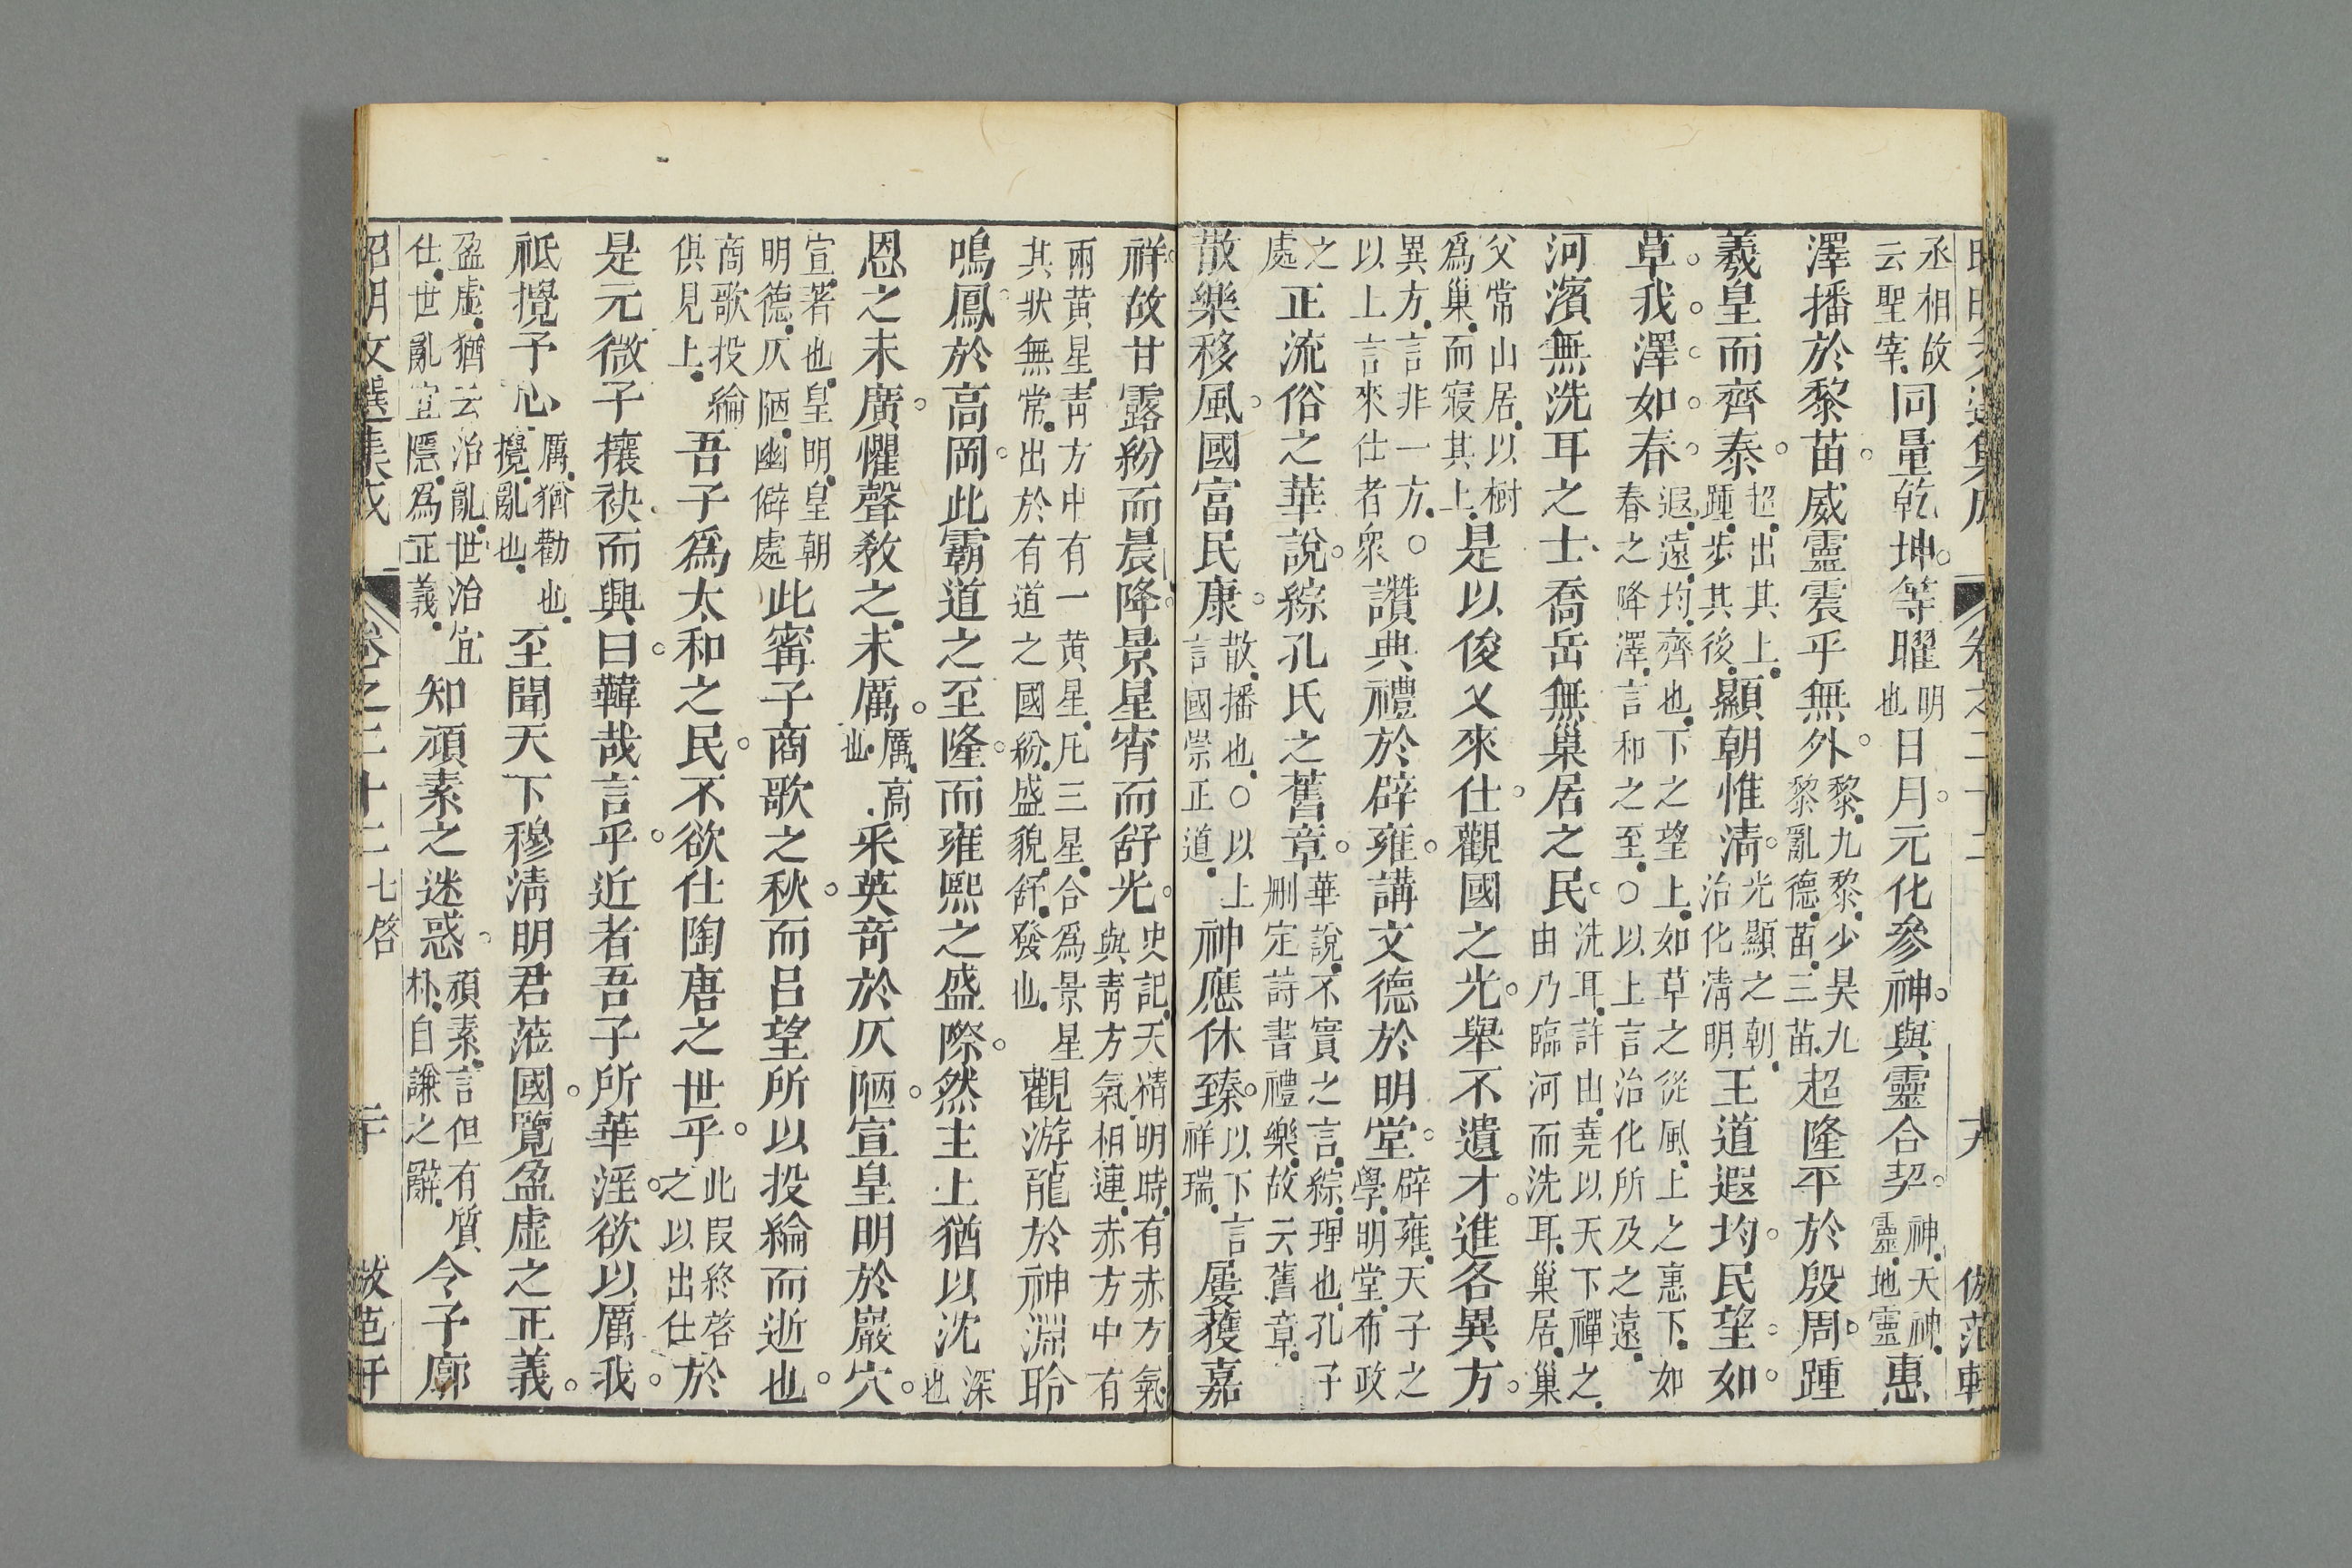 昭明文選集成 卷之三十二 十九 倣范軒
丞相故云聖宰同量乾坤。等曜明也日月。元化參神。與靈合契。神天神靈地靈惠
澤播於黎苗。威靈震乎無外。黎九黎少昊九黎亂德苗三苗超隆平於殷周。踵
羲皇而齊泰。超出其上踵步其後顯朝惟清。光顯之朝治化清明王道遐均。民望如。
草。我。澤。如。春。遐遠均齊也下之望上如草之從風上之惠下如春之降澤言和之至○以上言治化所及之遠
河濱無洗耳之士喬岳無巢居之民。洗耳許由堯以天下禪之由乃臨河而洗耳巢居巢
父常山居以樹爲巢而寢其上是以俊乂來仕。觀國之光。舉不遺才。進各異方。
異方言非一方○以上言來仕者衆讚典禮於辟雍。講文德於明堂。辟雍天子之學明堂布政
之處正流俗之華說。綜孔氏之舊章。華說不實之言綜理也孔子刪定詩書禮樂故云舊章
散樂移風。國富民康。散播也○以上言國崇正道神應休臻。以下言祥瑞屢獲嘉
祥。故甘露紛而晨降。景星宵而舒光。史記天精明時有赤方氣與青方氣相連赤方中有
兩黃星青方中有一黃星凡三星合爲景星其狀無常出於有道之國紛盛貌舒發也觀游龍於神淵聆
鳴鳳於高岡。此霸道之至隆。而雍熙之盛際。然主上猶以沈深也
恩之未廣。懼聲教之未厲。厲高也采英奇於仄陋。宣皇明於巖穴。
宣著也皇明皇朝明德仄陋幽僻處此甯子商歌之秋。而呂望所以投綸而逝也。
商歌投綸俱見上吾子爲太和之民。不欲仕陶唐之世乎。此段終啓之以出仕於
是元微子攘袂而興曰。韡哉言乎。近者吾子所華淫。欲以厲我。
祗攪予心厲猶勸也攪亂也至聞天下穆清明君蒞國。覽盈虛之正義。
盈虛猶云治亂世治宜仕世亂宜隱爲正義知頑素之迷惑。頑素言但有質朴自謙之辭今予廓
昭明文選集成 卷之三十二 七啓 二十 倣范軒